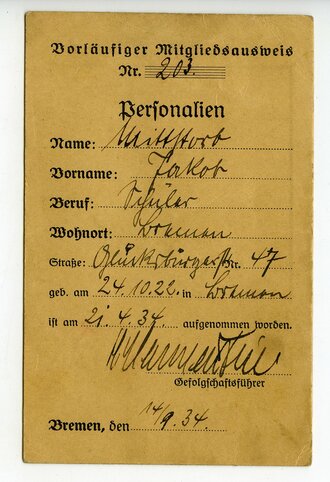 Vorläufiger Mitgliedsausweis
Nr. 203.
Personalien
Name: Mittstorb
Vorname: Jakob
Beruf: Schüler
Wohnort: Bremen
Straße: Glücksburgerstr. Nr. 47
geb. am 24.10.22. in Bremen
ist am 21.4.34. aufgenommen worden.
Gefolgschaftsführer
Bremen, den 14/9.34.